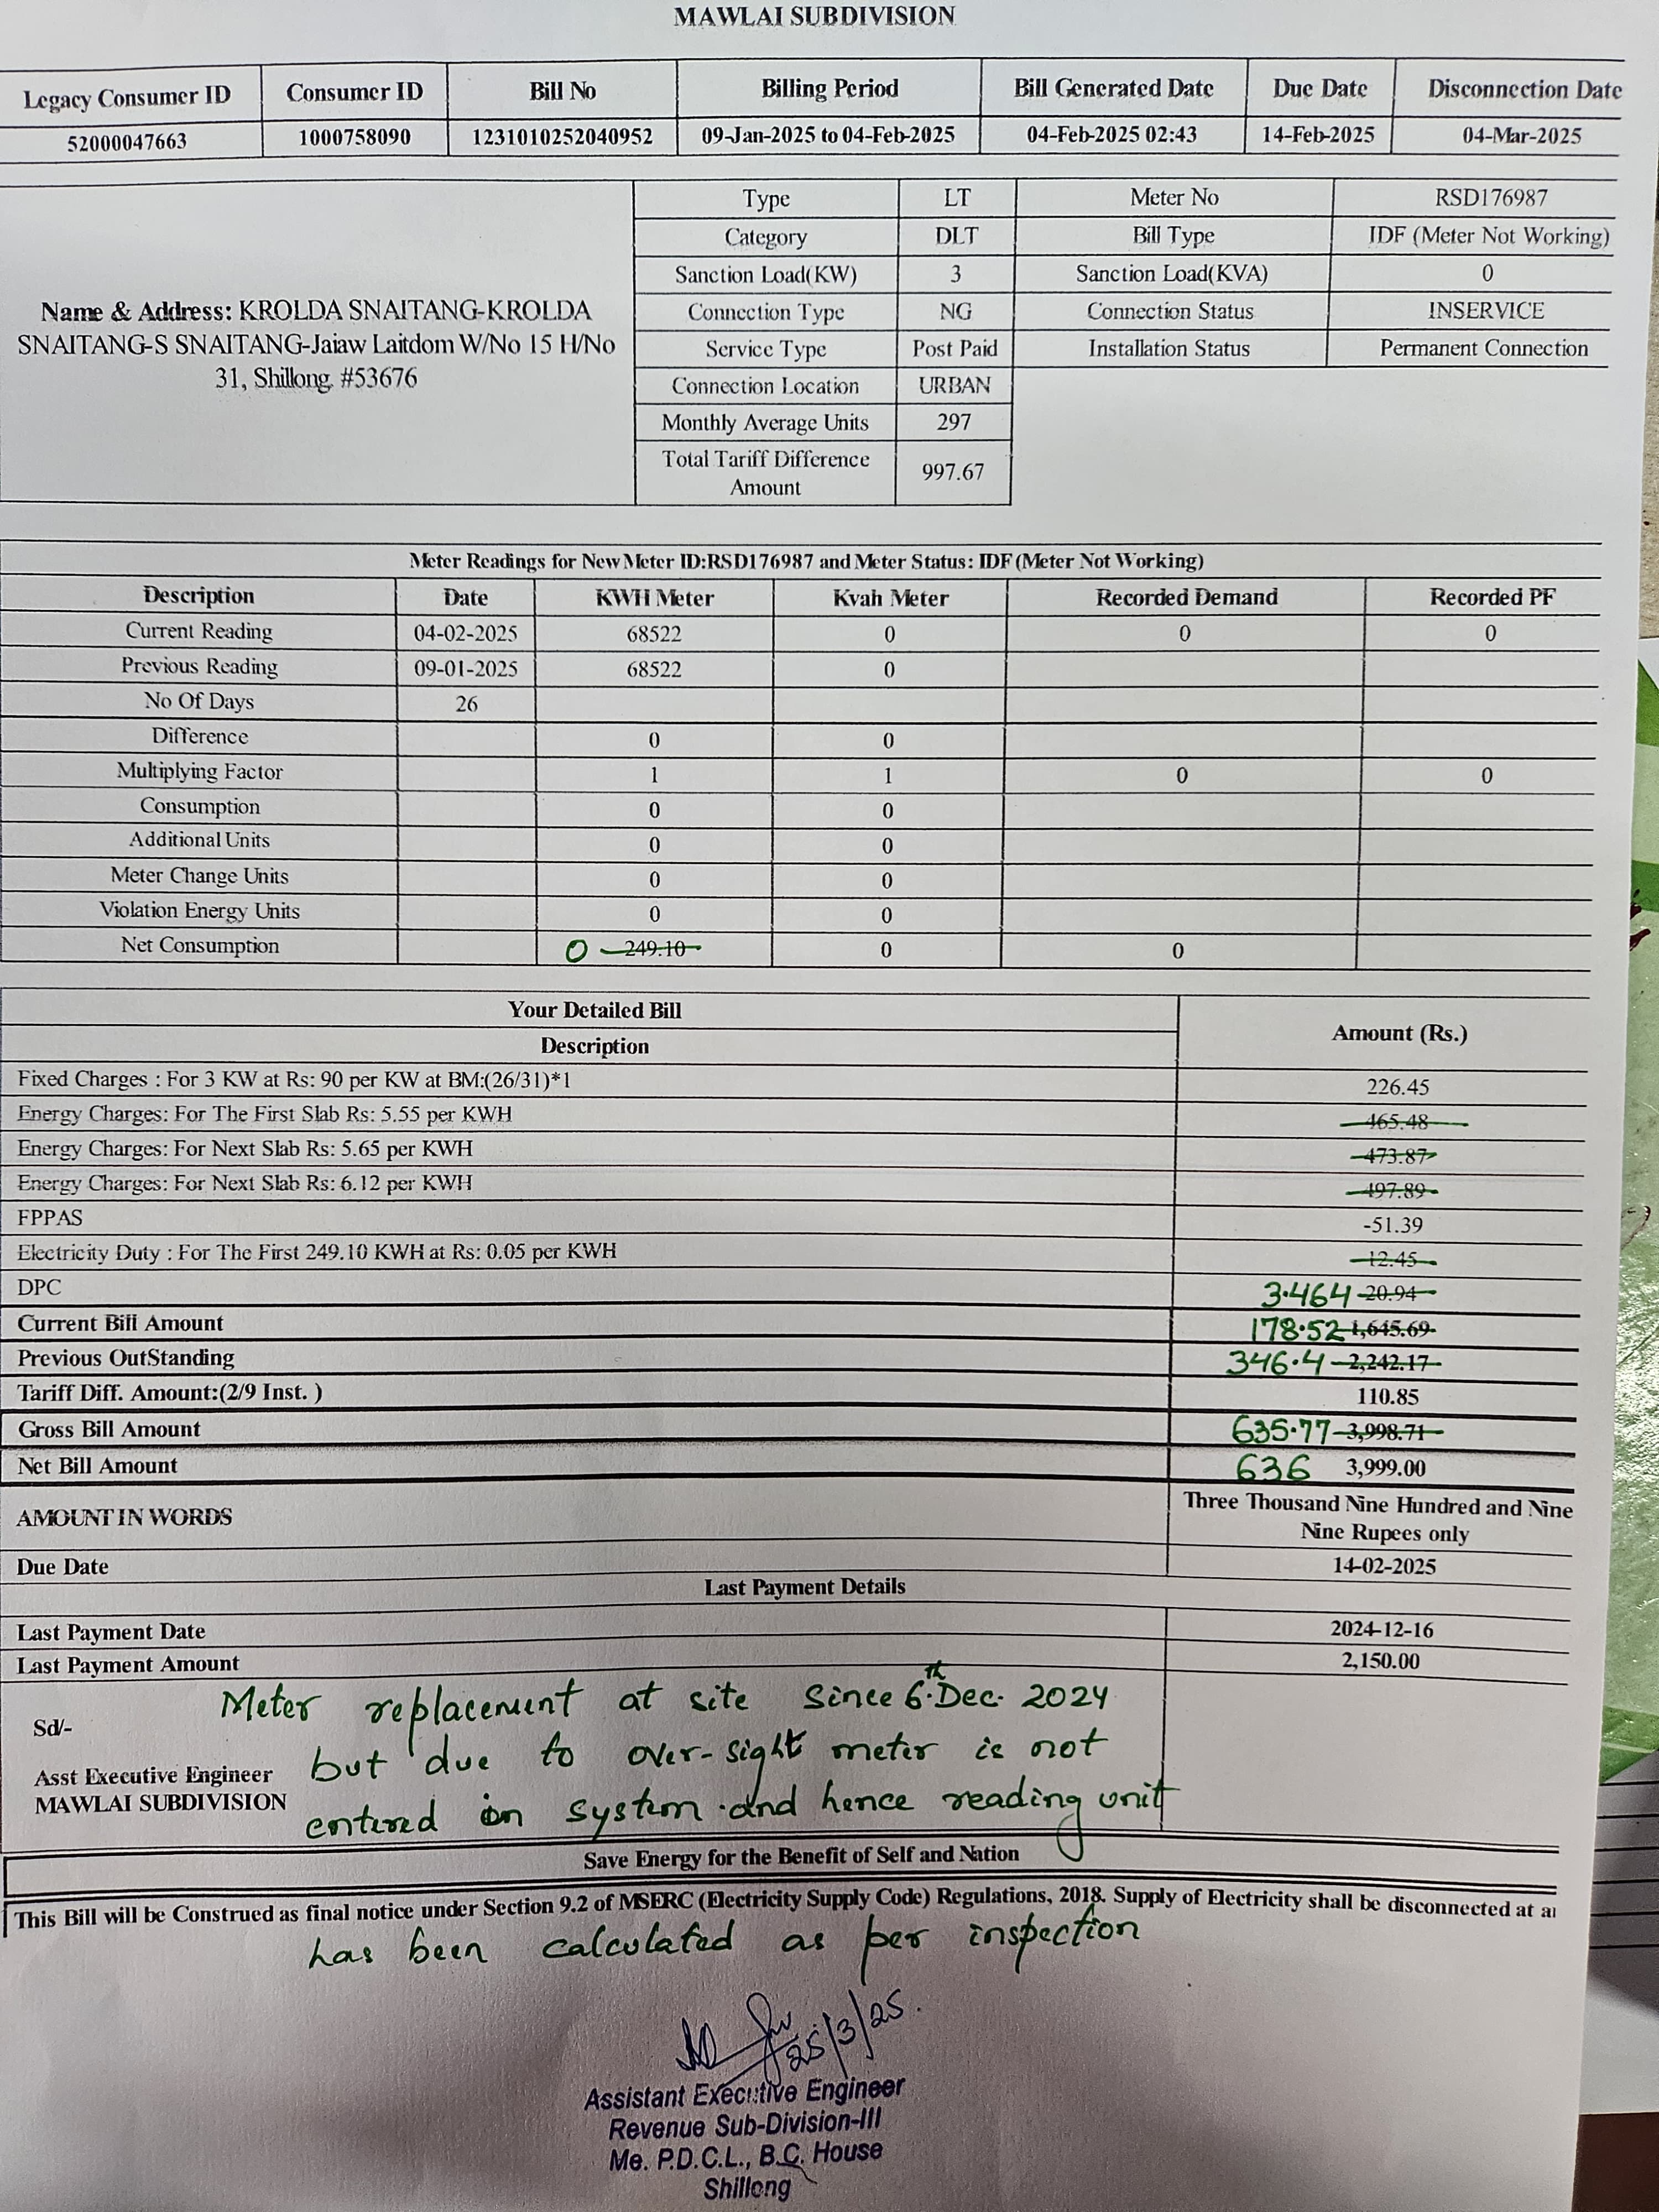 MAWLAI SUBDIVISION
Legacy Consumer ID Consumer ID Bill No Billing Period Bill Generated Date Due Date Disconnection Date
52000047663 1000758090 1231010252040952 09-Jan-2025 to 04-Feb-2025 04-Feb-2025 02:43 14-Feb-2025 04-Mar-2025
Name & Address: KROLDA SNAITANG-KROLDA
SNAITANG-S SNAITANG-Jaiaw Laitdom W/No 15 H/No
31, Shillong. #53676
Type LT Meter No RSD176987
Category DLT Bill Type IDF (Meter Not Working)
Sanction Load(KW) 3 Sanction Load(KVA) 0
Connection Type NG Connection Status INSERVICE
Service Type Post Paid Installation Status Permanent Connection
Connection Location URBAN
Monthly Average Units 297
Total Tariff Difference Amount 997.67
Meter Readings for New Meter ID:RSD176987 and Meter Status: IDF (Meter Not Working)
Description Date KWH Meter Kvah Meter Recorded Demand Recorded PF
Current Reading 04-02-2025 68522 0 0 0
Previous Reading 09-01-2025 68522 0
No Of Days 26
Difference 0 0
Multiplying Factor 1 1 0 0
Consumption 0 0
Additional Units 0 0
Meter Change Units 0 0
Violation Energy Units 0 0
Net Consumption 0 249.10 0 0
Your Detailed Bill
Description Amount (Rs.)
Fixed Charges : For 3 KW at Rs: 90 per KW at BM:(26/31)*1 226.45
Energy Charges: For The First Slab Rs: 5.55 per KWH 465.48
Energy Charges: For Next Slab Rs: 5.65 per KWH 473.87
Energy Charges: For Next Slab Rs: 6.12 per KWH 497.89
FPPAS -51.39
Electricity Duty : For The First 249.10 KWH at Rs: 0.05 per KWH 12.45
DPC 3.464 20.94
Current Bill Amount 178.52 1,645.69
Previous OutStanding 346.4 2,242.17
Tariff Diff. Amount:(2/9 Inst. ) 110.85
Gross Bill Amount 635.77 3,998.71
Net Bill Amount 636 3,999.00
AMOUNT IN WORDS Three Thousand Nine Hundred and Nine
Nine Rupees only
Due Date 14-02-2025
Last Payment Details
Last Payment Date 2024-12-16
Last Payment Amount 2,150.00
Meter replacement at site since 6th Dec. 2024
Sd/-
but due to over-sight meter is not
Asst Executive Engineer
MAWLAI SUBDIVISION
entered in system and hence reading unit
Save Energy for the Benefit of Self and Nation
This Bill will be Construed as final notice under Section 9.2 of MSERC (Electricity Supply Code) Regulations, 2018. Supply of Electricity shall be disconnected at
has been calculated as per inspection
25/3/25.
Assistant Executive Engineer
Revenue Sub-Division-III
Me. P.D.C.L., B.C. House
Shillong